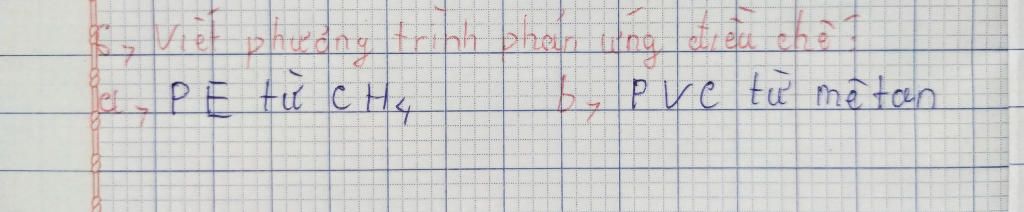 5, Viết phương trình phản ứng điều chế:
a, PE từ CH4 b, PVC từ mêtan